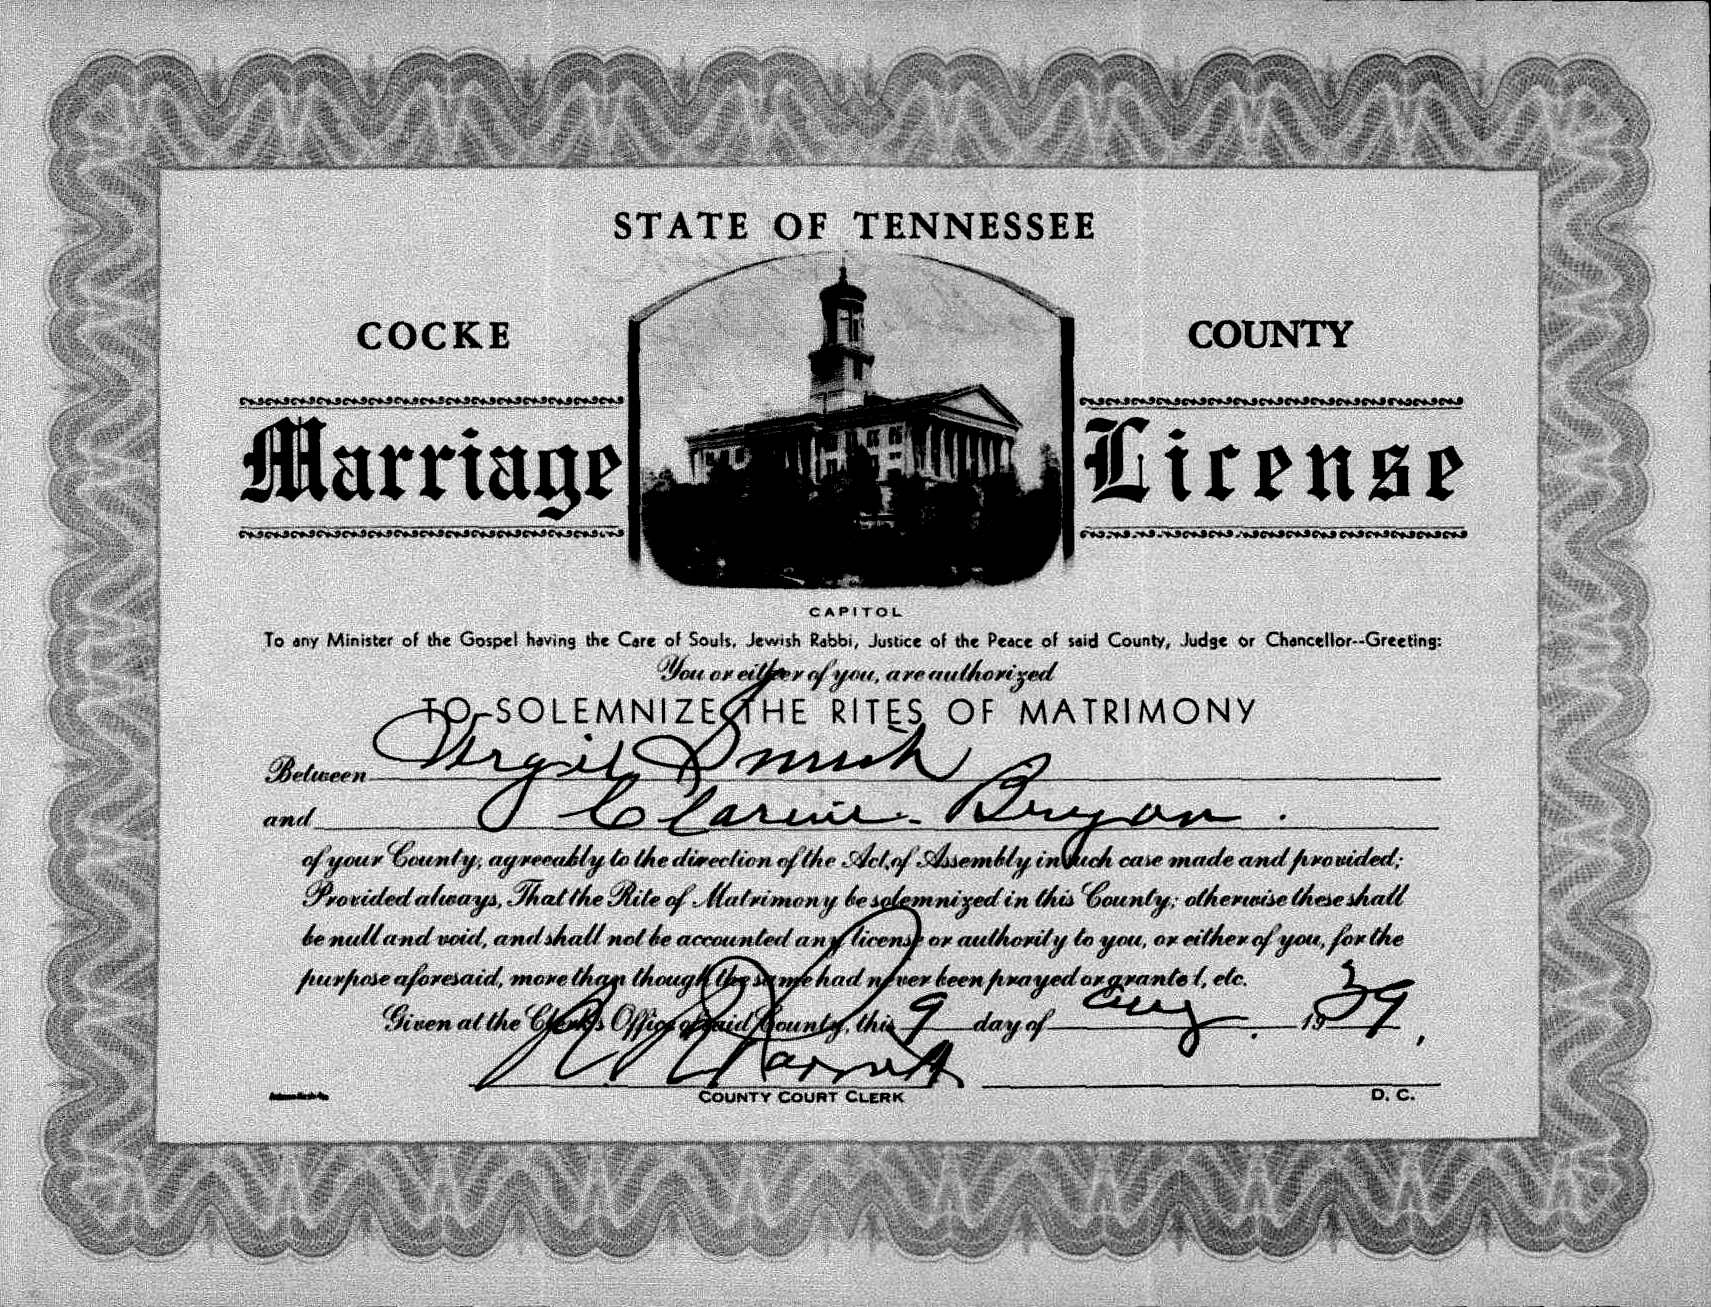 STATE OF TENNESSEE
COCKE COUNTY
Marriage License
CAPITOL
To any Minister of the Gospel having the Care of Souls, Jewish Rabbi, Justice of the Peace of said County, Judge or Chancellor--Greeting:
You or either of you, are authorized
TO SOLEMNIZE THE RITES OF MATRIMONY
Between Virgil Smith
and Bryan.
of your County, agreeably to the direction of the Act, of Assembly in such case made and provided;
Provided always, That the Rite of Matrimony be solemnized in this County; otherwise these shall
be null and void, and shall not be accounted any license or authority to you, or either of you, for the
purpose aforesaid, more than though the same had never been prayed or granted, etc.
Given at the Clerk's Office of said County, this 9 day of Aug. 1939,
COUNTY COURT CLERK D. C.